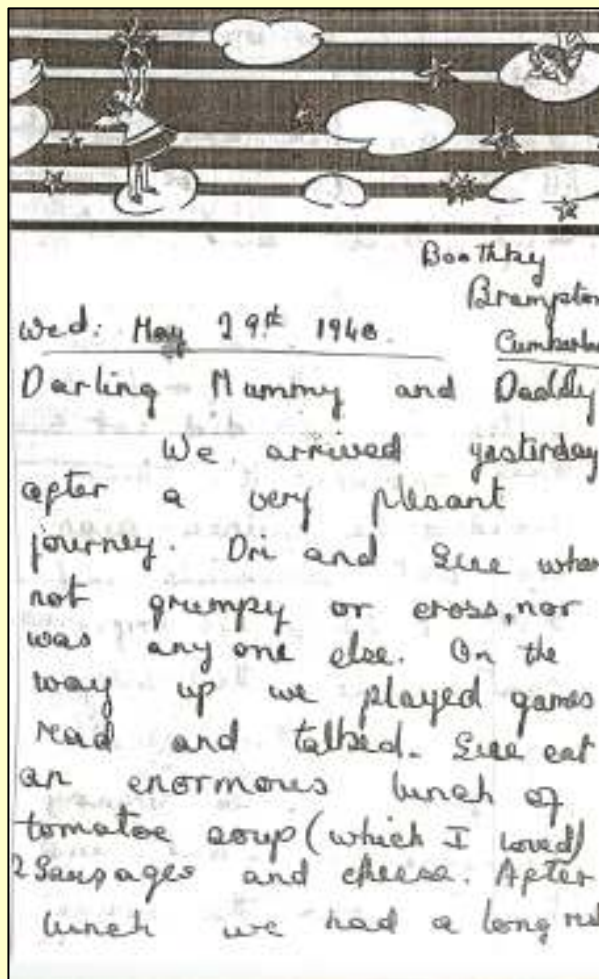 Boothby
Brampton
Wed: May 29th 1940.
Darling Mummy and Daddy
We arrived yestirday
after a very plesant
journey. Dri and
not grumpy or cross, nor
was any one else. On the
way up we played games
read and talked. eat
an enormous lunch of
tomatoe soup (which I loved)
2 Sausages and cheese. After
lunch we had a long